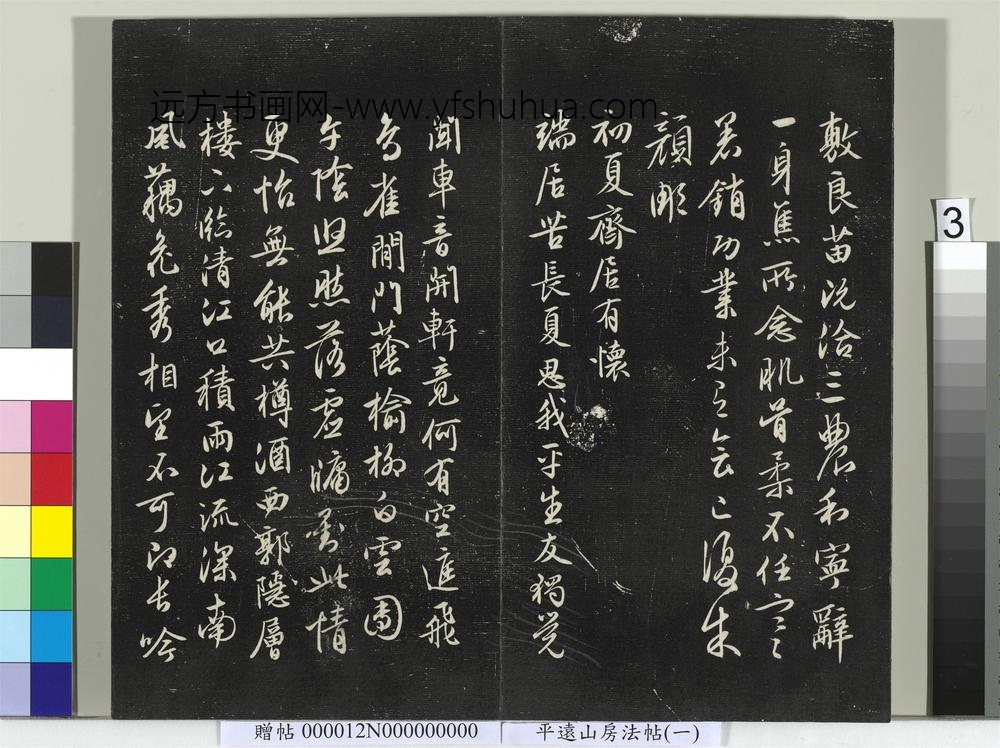 远方书画网-www.yfshuhua.com
敷良苗沉洽三農利寧辭
一身焦所念肌骨柔不任
寒
暑銷功業未之會已復朱
顏彫
初夏齋居有懷
端居苦長夏思我平生友獨覺
聞車音開軒竟何有空庭飛
鳥雀閒門蔭榆柳白雲團
午陰返照落虛牖對此情
更怡無能共樽酒西郭隱層
樓下臨清江口積雨江流深南
風藕花秀相望不可即长吟
3
贈帖 000012N000000000
平遠山房法帖(一)